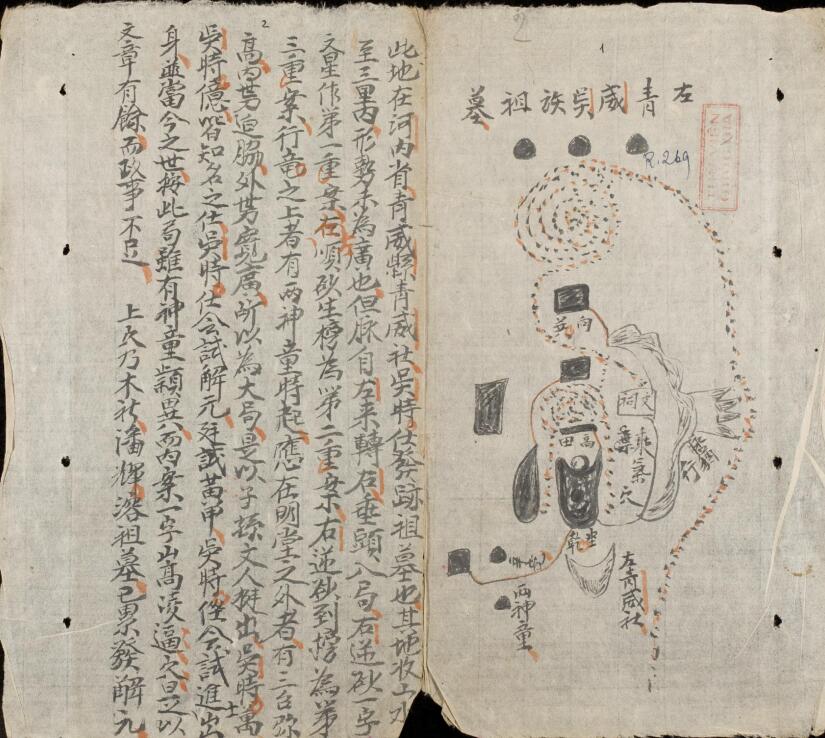 左青威吳族祖墓
R.269
向
文祠
高田
乘氣穴
坐乾
左青威社
兩神童
1
2
此地在河內省青威縣青威社吳時仕發跡祖墓也其地收山水
至三里內形勢未為廣也但脉自左來轉右垂頭入局右逆砂一字
文星作第一重案左順砂生榜為第二重案右逆砂到榜為第
三重案行龍之上者有兩神童特起應在明堂之外者有三台弥
高內势迫脇外势寬廣所以為大局是以子孫文人挺出吳時萬
吳時億皆知名之仕吳時仕会試解元廷試黃甲吳時僅会試進士出
身並當今之世按此局雖有神童穎異而內案一字山高逼穴是以
文章有餘而政事不足 上氏乃木社潘輝溶祖墓已累發解元